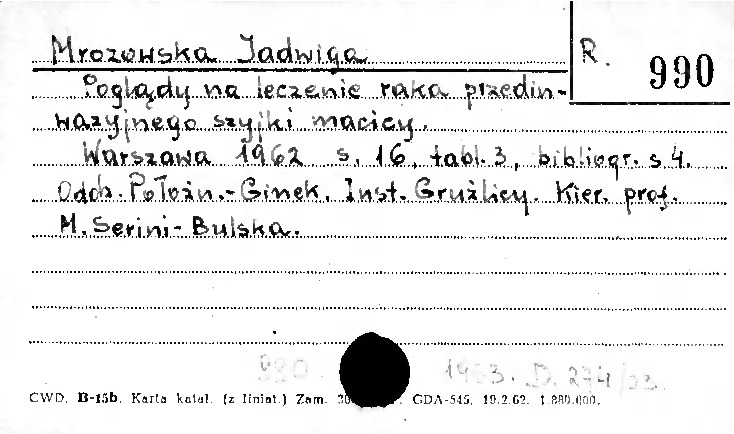 Mrozowska Jadwiga
R. 990
Poglądy na leczenie raka przedin-
wazyjnego szyjki macicy.
Warszawa 1962 s. 16, tabl. 3, bibliogr. s 4.
Oddz. Położn.-Ginek. Inst. Gruźlicy. Kier. prof.
M. Serini-Bulska.
990. 1963. D. 274/23.
CWD. B-15b. Karta katal. (z liniat.) Zam. GDA-545. 19.2.62. 1.880.000.